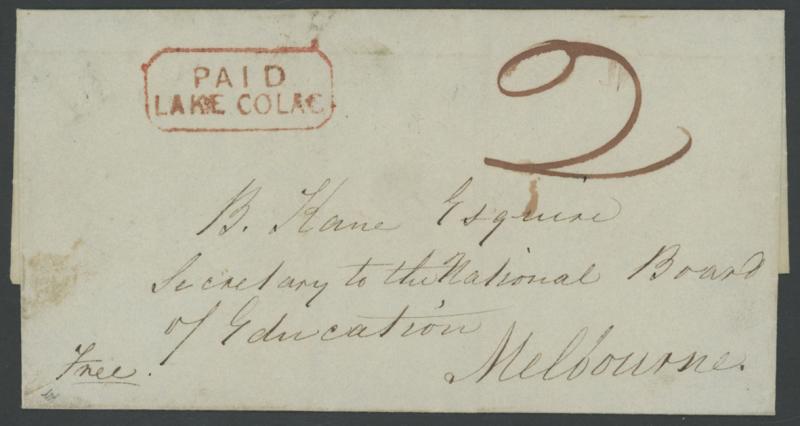 PAID
LAKE COLAC
2
B. Kane Esquire
Secretary to the National Board
of Education
Melbourne.
Free.